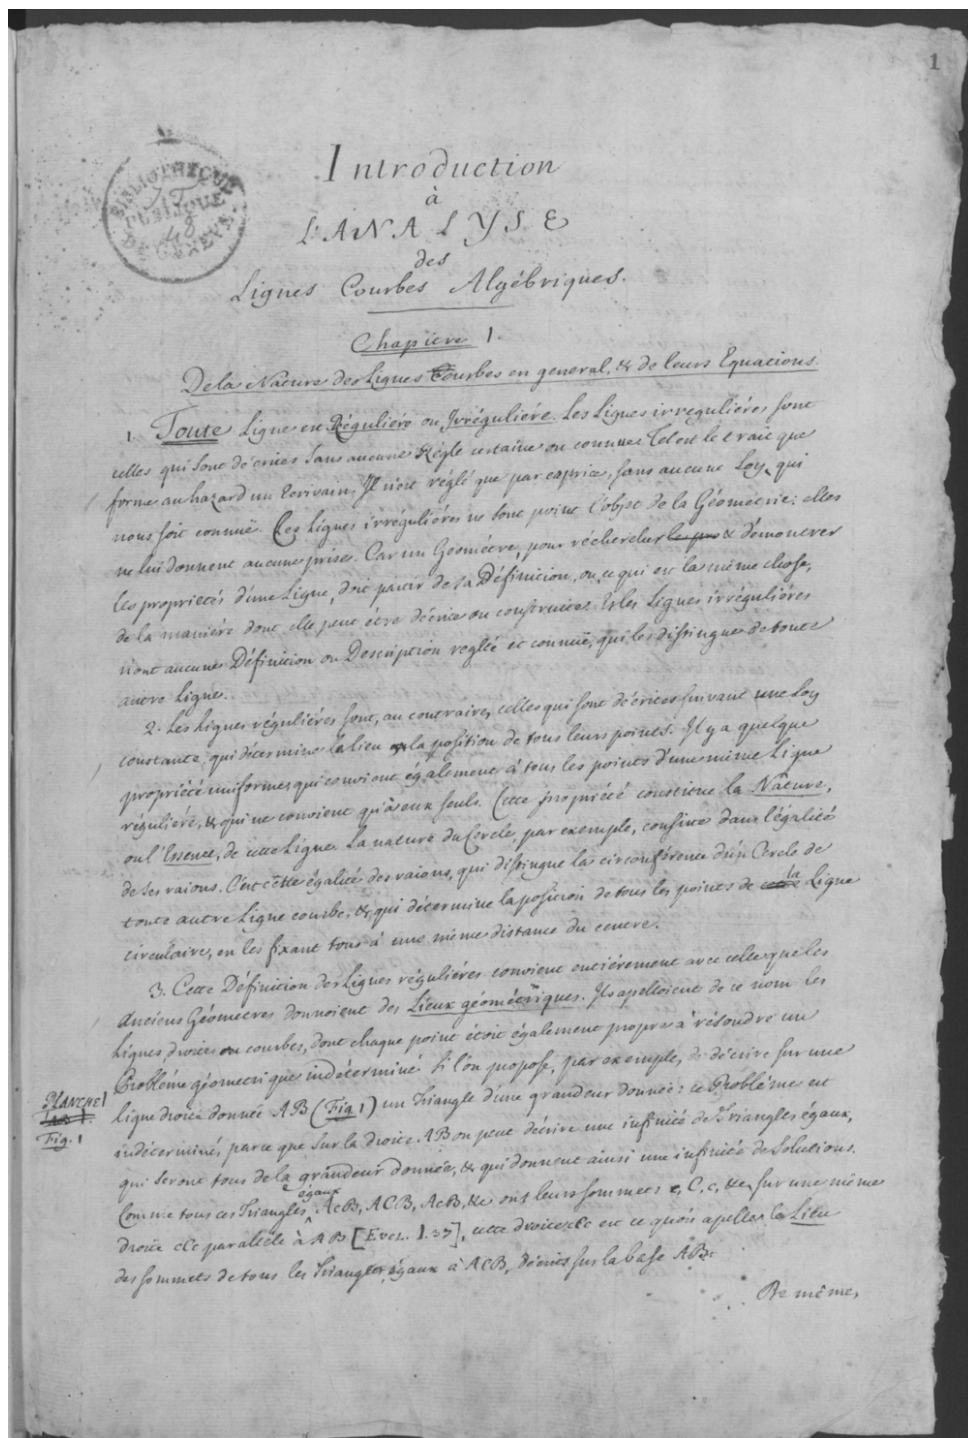 1
BIBLIOTHEQUE
PUBLIQUE
48
DE GENEVE
Introduction
à
L'ANALYSE
des
Lignes Courbes Algébriques.
Chapitre 1.
De la Nature des Lignes Courbes en general, & de leurs Equations.
1. Toute Ligne est Réguliére ou Irréguliére. Les Lignes irreguliéres sont
celles qui sont décrites sans aucune Régle certaine ou connue. Tel est le trait que
forme au hazard un Ecrivain; Il n'est réglé que par caprice, sans aucune Loy qui
nous soit connuë. Ces Lignes irréguliéres ne sont point l'objet de la Géométrie: elles
ne lui donnent aucune prise. Car un Géométre, pour réchercher & démontrer
les proprietés d'une Ligne, doit partir de sa Définition, ou, ce qui est la même chose,
de la maniére dont elle peut être décrite ou construite. Et les Lignes irréguliéres
n'ont aucune Définition ou Description reglée et connuë, qui les distingue de toute
autre Ligne.
2. Les Lignes réguliéres sont, au contraire, celles qui sont décrites suivant une Loy
constante, qui détermine le lieu & la position de tous leurs points. Il y a quelque
propriété uniforme, qui convient également à tous les points d'une même Ligne
réguliére, & qui ne convient qu'à eux seuls. Cette propriété constitue la Nature,
ou l'Essence, de cette Ligne. La nature du Cercle, par exemple, consiste dans l'égalité
de ses raions. C'est cette égalité des raions, qui distingue la circonférence d'un Cercle de
toute autre Ligne courbe, & qui détermine la position de tous les points de la Ligne
circulaire, en les fixant tous à une même distance du centre.
3. Cette Définition des Lignes réguliéres convient entiérement avec celle que les
Anciens Géometres donnoient des Lieux géométriques. Ils apelloient de ce nom les
Lignes, droites ou courbes, dont chaque point étoit également propre à résoudre un
Probléme géometrique indéterminé. Si l'on propose, par exemple, de décrire sur une
PLANCHE I
Fig. 1
ligne droite donnée AB (Fig. 1) un Triangle d'une grandeur donnée: ce Probléme est
indéterminé, parce que sur la droite AB on peut décrire une infinité de Triangles égaux,
qui seront tous de la grandeur donnée, & qui donnent ainsi une infinité de Solutions.
Comme tous ces Triangles égaux AcB, ACB, AcB, &c ont leurs sommets c, C, c, &c sur une même
droite cCc paralléle à AB [Eucl. I. 37], cette droite cCc est ce qu'on apelle le Lieu
des sommets de tous les Triangles, égaux à ACB, décrits sur la base AB.
De même,